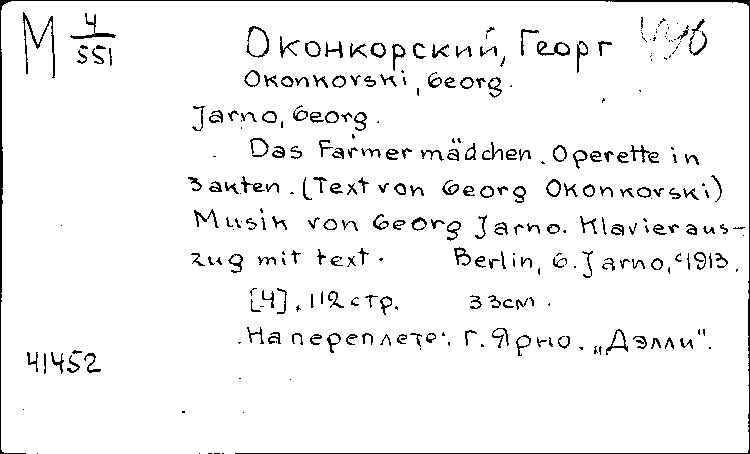 M 4/551
Оконкорский, Георг
Okonkovski, Georg.
Jarno, Georg.
Das Farmermädchen. Operette in
3 akten. (Text von Georg Okonkovski)
Musik von Georg Jarno. Klavieraus-
zug mit text. Berlin, G. Jarno, c1913.
[4], 112 стр. 33см.
На переплете: Г. Ярно. „Дэлли".
41452